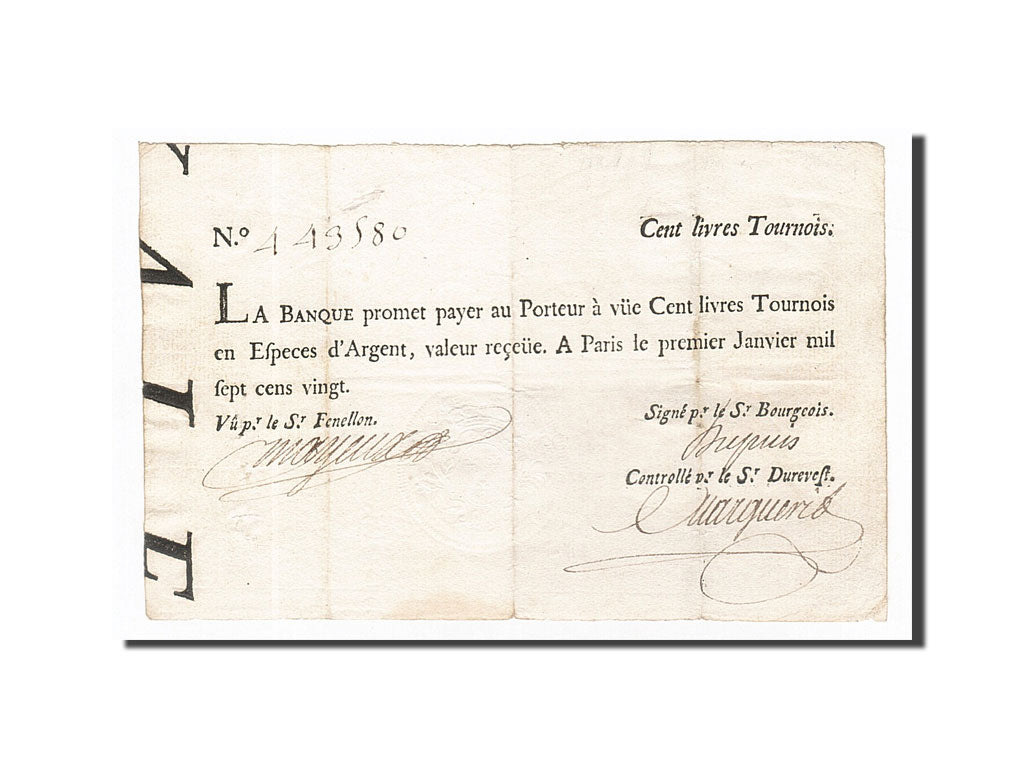 N.º 443580
Cent livres Tournois.
LA BANQUE promet payer au Porteur à vüe Cent livres Tournois
en Eſpeces d'Argent, valeur reçeüe. A Paris le premier Janvier mil
ſept cens vingt.
Vû p.r le S.r Fenellon.
Signé p.r le S.r Bourgeois.
Controllé p.r le S.r Dureveſt.